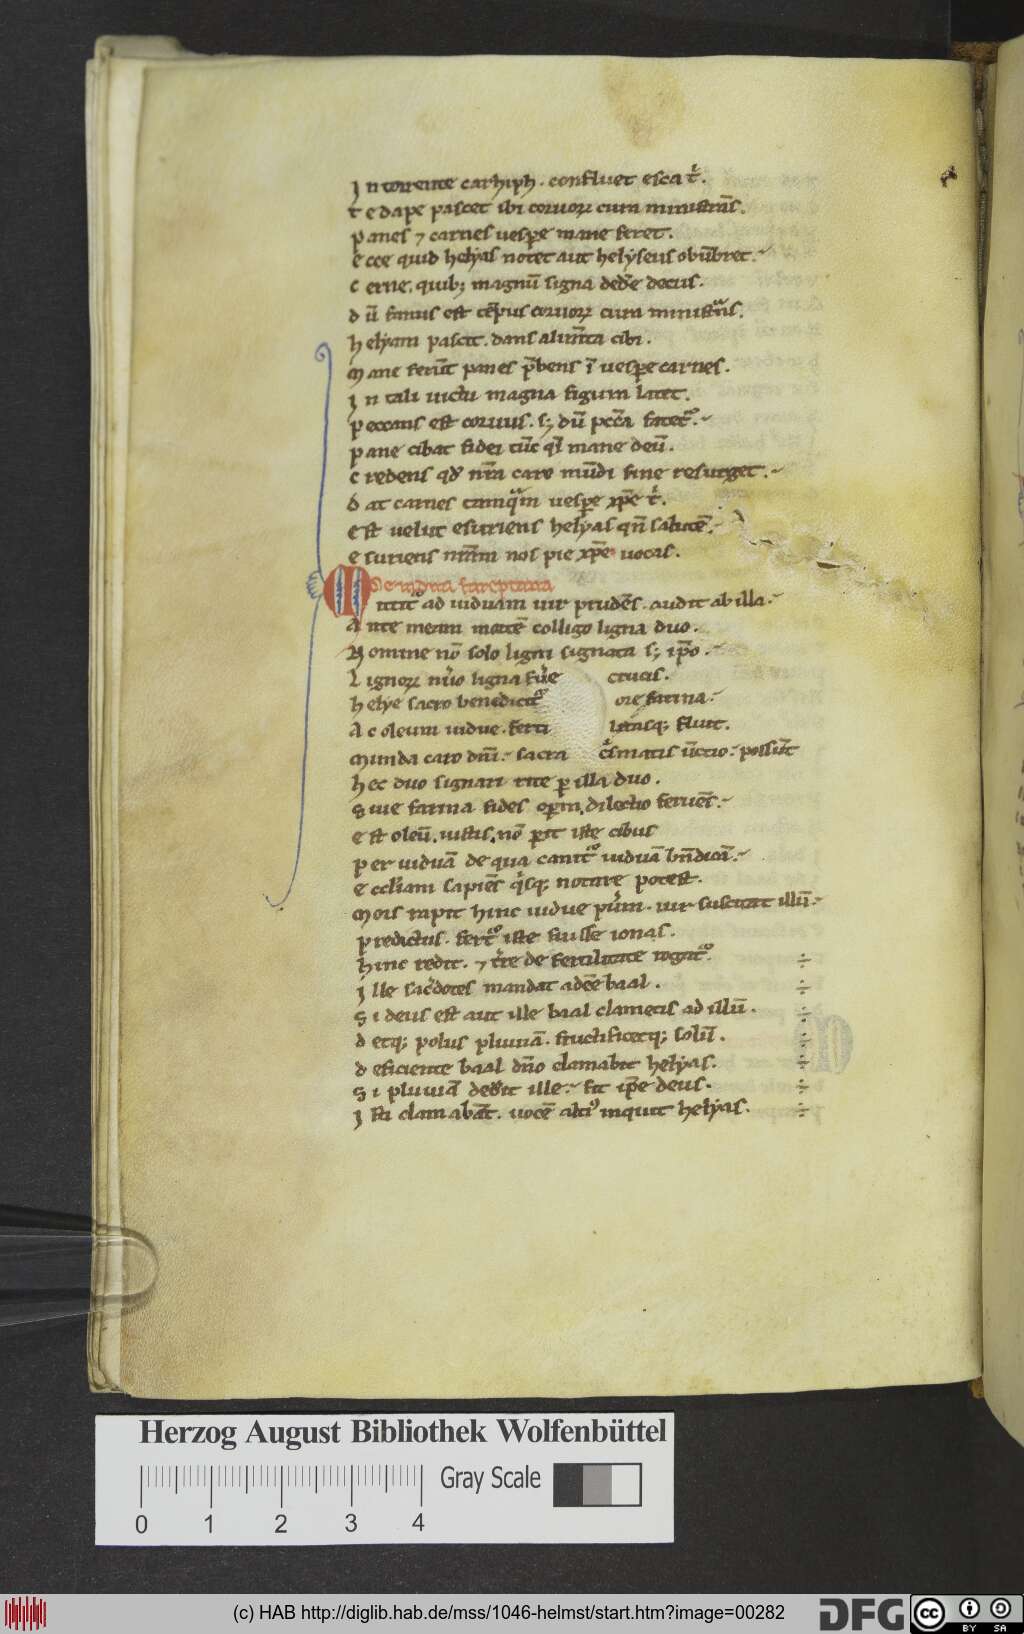 In torrente carhiph. confluet esca t̉.
Te dape pascet ibi coruoꝝ cum ministr̄s.
Panes ⁊ carnes uesꝑe mane feret.
Ecce quid helẏas notet aut helẏseus obūbret.
Cerne. quibꝫ magnū signa ded̓e decus.
Dū famis est tēpus coruoꝝ cum ministr̄s.
Helẏam pascit. dans alim̄ta cibi.
Mane ferūt panes p̄bens ī uesꝑe carnes.
In tali uictu magna figura latet.
Peccans est coruus. sꝫ dū pcc̄a fatet᷑.
Pane cibat fidei tūc q̄i mane deū.
Credens qđ nr̄a caro mūdi fine resurget.
Dat carnes tamqᵃm uesꝑe xp̄e t̉.
Est uelut esuriens helẏas qn̄ salutē.
Esuriens nr̄am nos pie xp̄e uocas.
De uidua sareptana
Mittit᷑ ad uiduam uir prudēs. audit ab illa.
Ante meam mortē colligo ligna duo.
Nomine nō solo ligni signata sꝫ ip̄o.
Lignoꝝ nr̄o ligna fūe crucis.
Helẏe sacro benedicit᷑ ore farina.
Ac oleum uidue. ferti litasqꝫ fluit.
Munda caro dn̄i. sacra c̓smatis ūctio. possūt
Hec duo signari rite ꝑ illa duo.
Siue farina fides oꝑum. dilectio feruēs.
Est oleū. iustis. nō ꝑit iste cibus
Per uiduā de qua canit᷑ uiduā bn̄dicā.
Eccl̄iam sapiēs qⁱsqꝫ notare potest.
Mors rapit hinc uidue pu̓m. uir suscitat illū.
Predictus. fert᷑ iste fuisse ionas.
Hinc redit. ⁊ t̓re de fertilitate rogat᷑.
Ille sac̓dotes mandat adeē baal.
Si deus est aut ille baal clametis ad illū.
Detqꝫ polus pluuiā. fructificetqꝫ solū.
Deficiente baal dn̄o clamabit helẏas.
Si pluuiā ded̓it ille. sit ip̄e deus.
Isti clamabāt. uocē alti᷒ inquit helẏas.
Herzog August Bibliothek Wolfenbüttel
Gray Scale
0 1 2 3 4
(c) HAB http://diglib.hab.de/mss/1046-helmst/start.htm?image=00282
DFG
cc BY SA